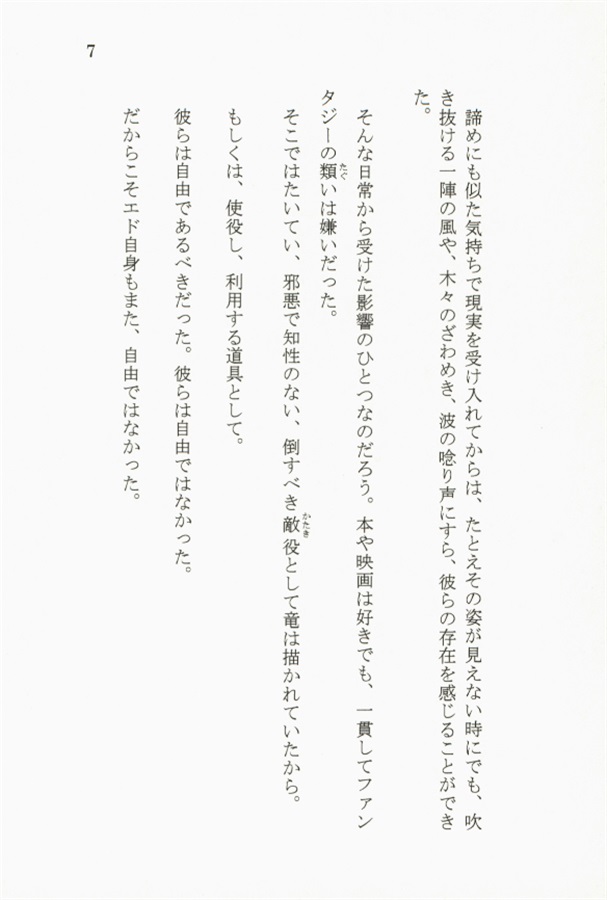 7
諦めにも似た気持ちで現実を受け入れてからは、たとえその姿が見えない時にでも、吹
き抜ける一陣の風や、木々のざわめき、波の唸り声にすら、彼らの存在を感じることができ
た。
そんな日常から受けた影響のひとつなのだろう。本や映画は好きでも、一貫してファン
タジーの類いは嫌いだった。
たぐ
そこではたいてい、邪悪で知性のない、倒すべき敵役として竜は描かれていたから。
かたき
もしくは、使役し、利用する道具として。
彼らは自由であるべきだった。彼らは自由ではなかった。
だからこそエド自身もまた、自由ではなかった。